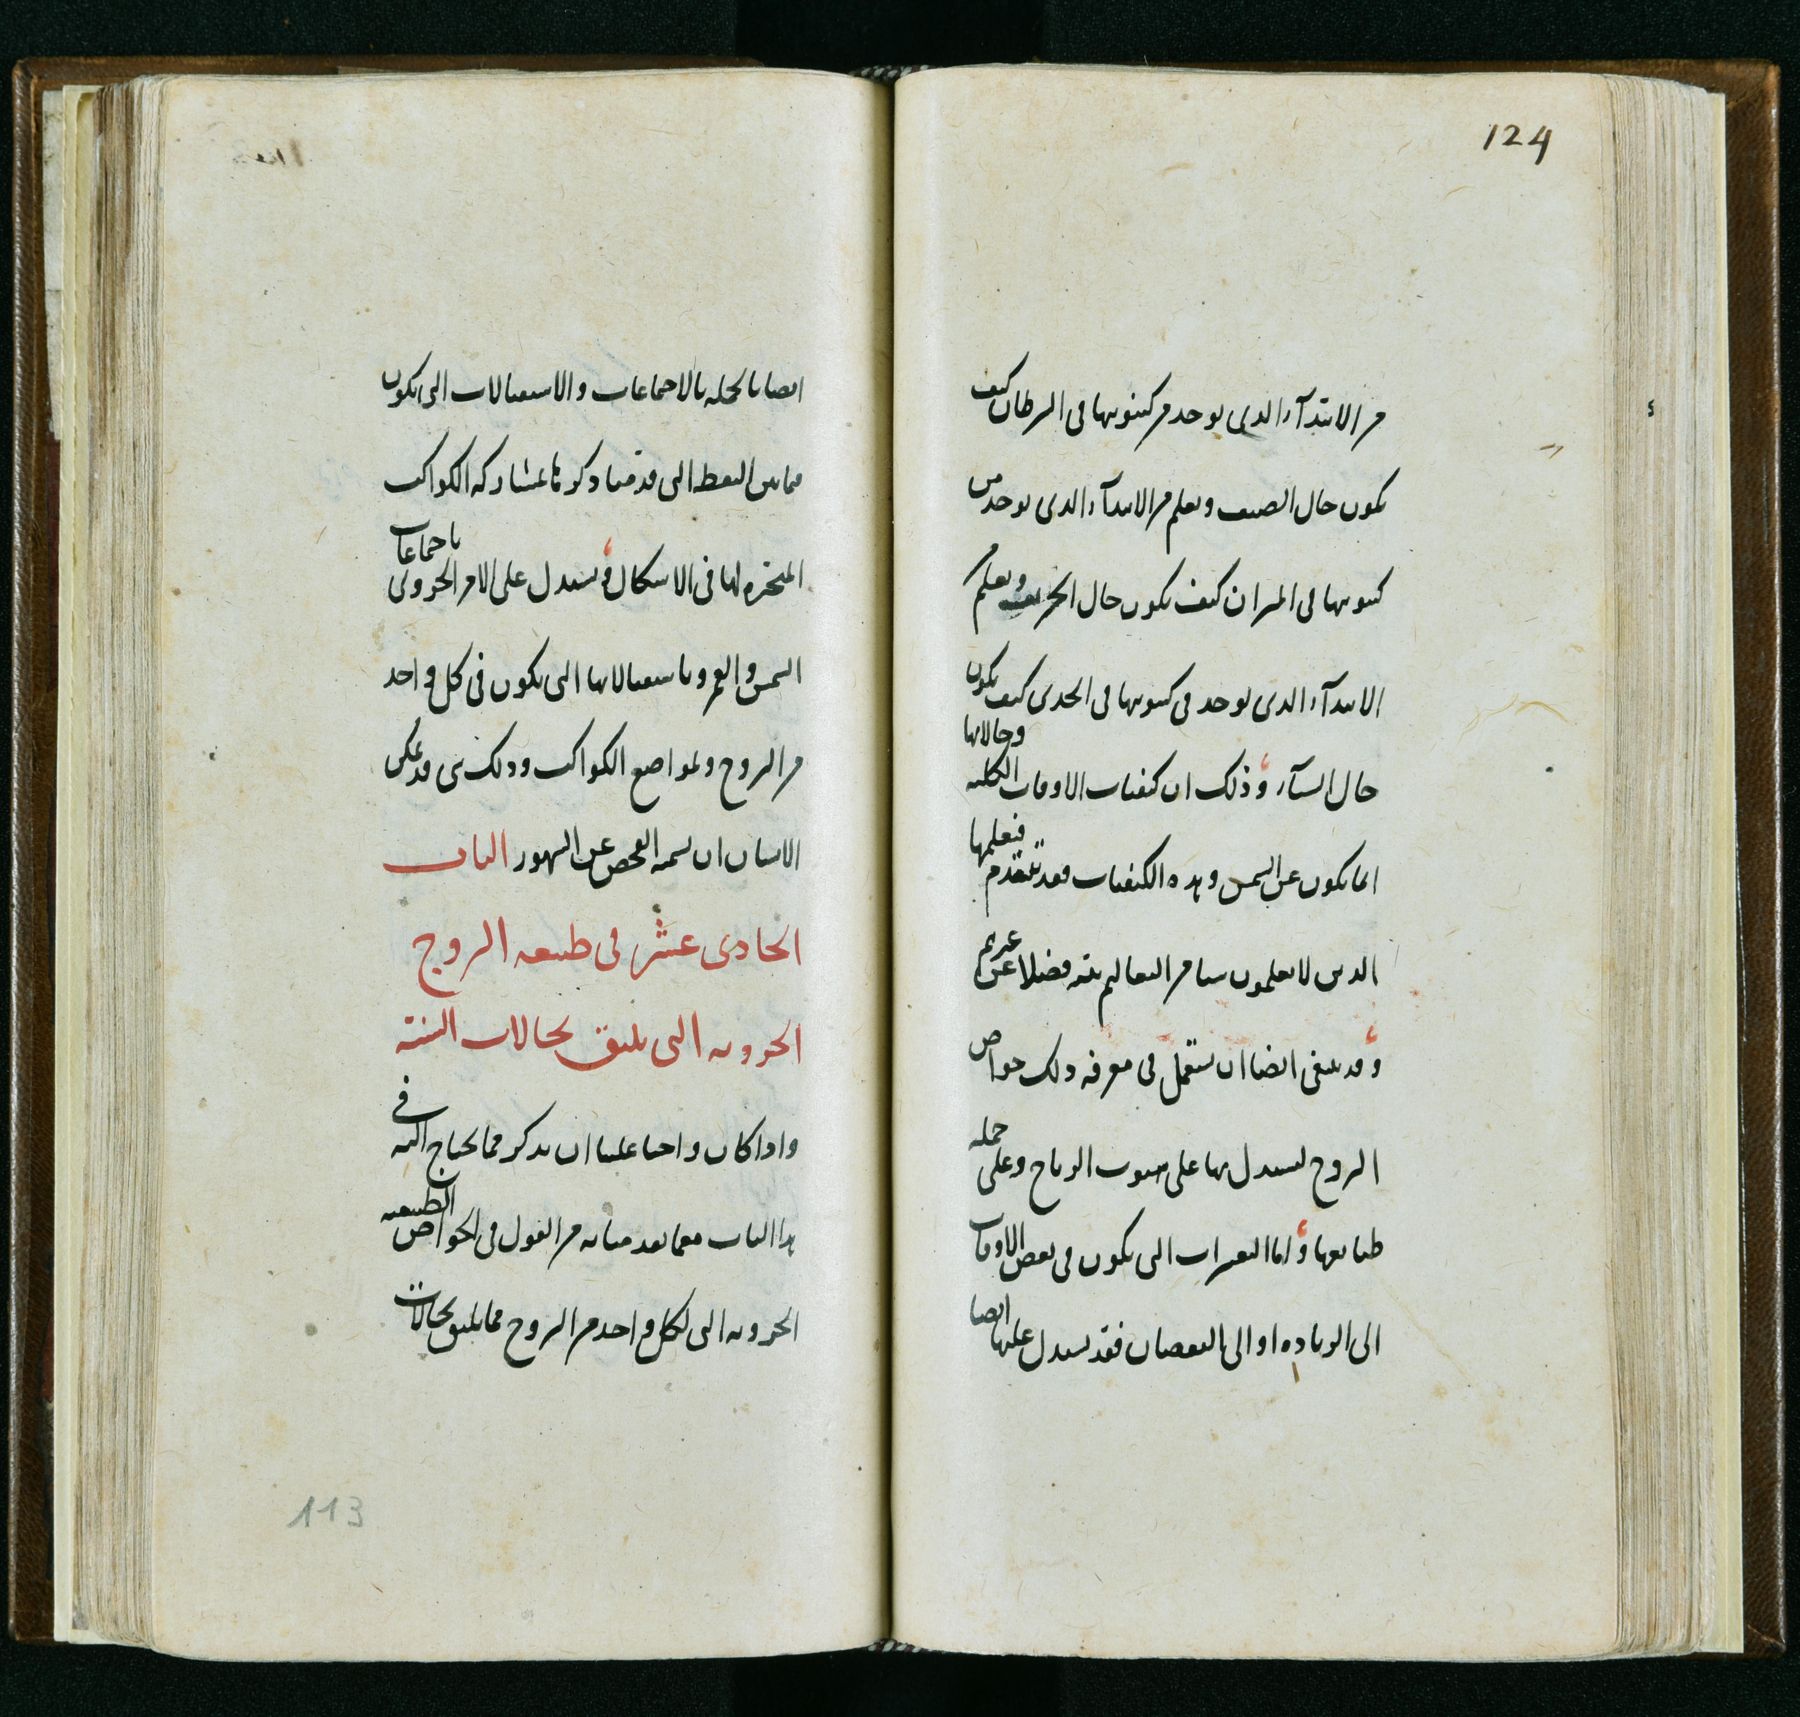 124
من الابتدآء الذى يوخذ من كينونيها فى السرطان كيف
يكون حال الصيف ويعلم من الابتدآء الذى يوخذ من
كينونيها فى الميزان كيف يكون حال الخريف ويعلم من
الابتدآء الذى يوخذ فى كينونيها فى الجدى كيف يكون
حال الشتآء وذلك ان كيفيات الاوقات الكليه وحالاتها
انما يكون عن الشمس وهذه الكيفيات فقد يتقدم فيعلمها
الذين لا يعلمون شيا من التعاليم بته فضلا عن غيرهم
وقد ينبغى ايضا ان يستعمل فى معرفه ذلك خواص
البروج ليستدل بها على هبوب الرياح وعلى جمله
طبايعها واما التغيرات التى يكون فى بعض الاوقات
الى الزياده او الى النقصان فقد يستدل عليها ايضا
ايضا بالجمله بالاجتماعات والاستقبالات التى يكون
فيما بين النقط التى قدمنا ذكرها بمشاركه الكواكب
المتحيره لها فى الاشكال ويستدل على الامر الجزوى باجتماعات
الشمس والقمر وباستقبالاتها التى يكون فى كل واحد
من البروج وبمواضع الكواكب وذلك شى قد يمكن
الانسان ان يسميه الفحص عن الشهور الباب
الحادى عشر فى طبيعه البروج
الجزويه التى يليق بحالات السنة
واذا كان واجبا علينا ان نذكر مما يحتاج اليه فى
هذا الباب فيما بعد ميناه من القول فى الخواص الطبيعيه
الجزويه التى لكل واحد من البروج مما يليق بحالات
113